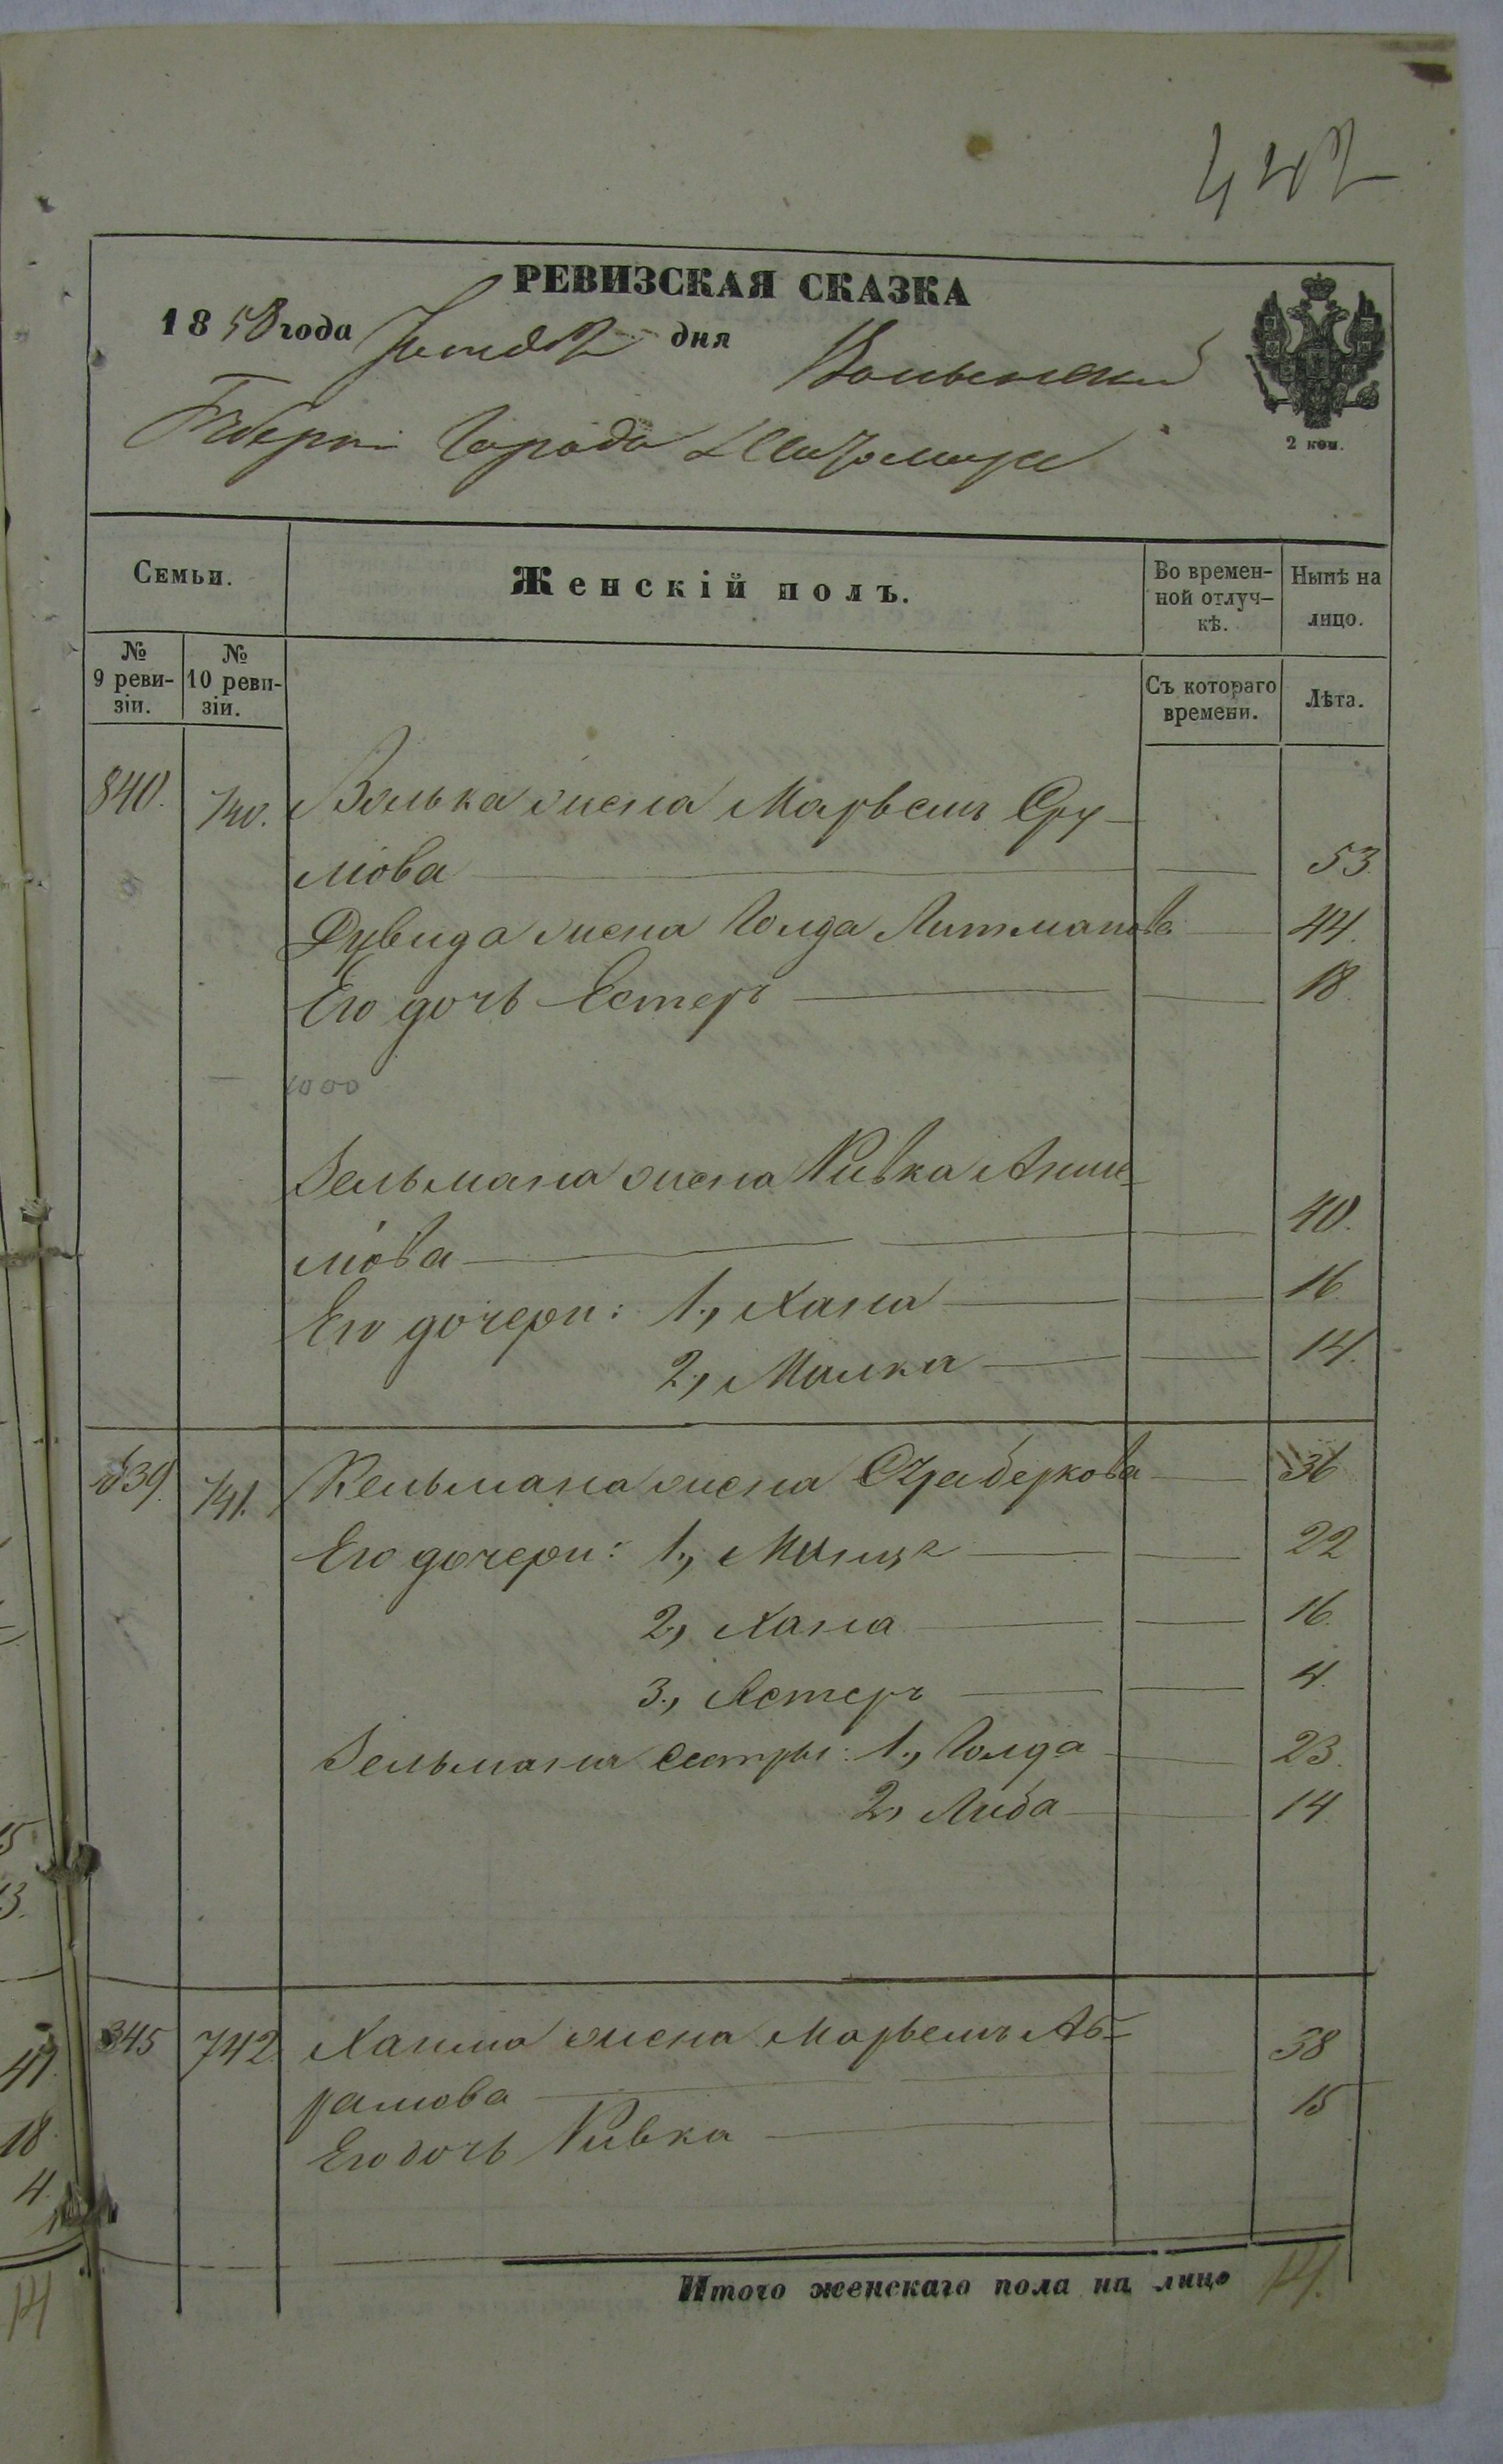 442
РЕВИЗСКАЯ СКАЗКА
1858 года дня Волынской
Губерніи Города Житомира
2 коп.
Семьи.
Женскій полъ.
Во времен-
ной отлуч-
кѣ.
Нынѣ на
лицо.
№
9 реви-
зіи.
№
10 реви-
зіи.
Съ котораго
времени.
Лѣта.
840. 740. Волька жена Марьемъ Сру-
мова 53.
Дувида жена Голда Литманова 44.
Его дочь Естеръ 18.
Зельмана жена Ривка
мова 40.
Его дочери: 1., Хана 16.
2., Малка 14.
839. 741. Кельмана жена беркова 36
Его дочери: 1., 22
2., Хана 16.
3., Естеръ 4.
Зельмана сестры: 1., Голда 23.
2, Либа 14
845 742. Хаима жена Марьемъ Аб-
рамова 38
Его дочь Ривка 15
Итого женскаго пола на лицо 14.
15
13.
41.
18.
4.
14